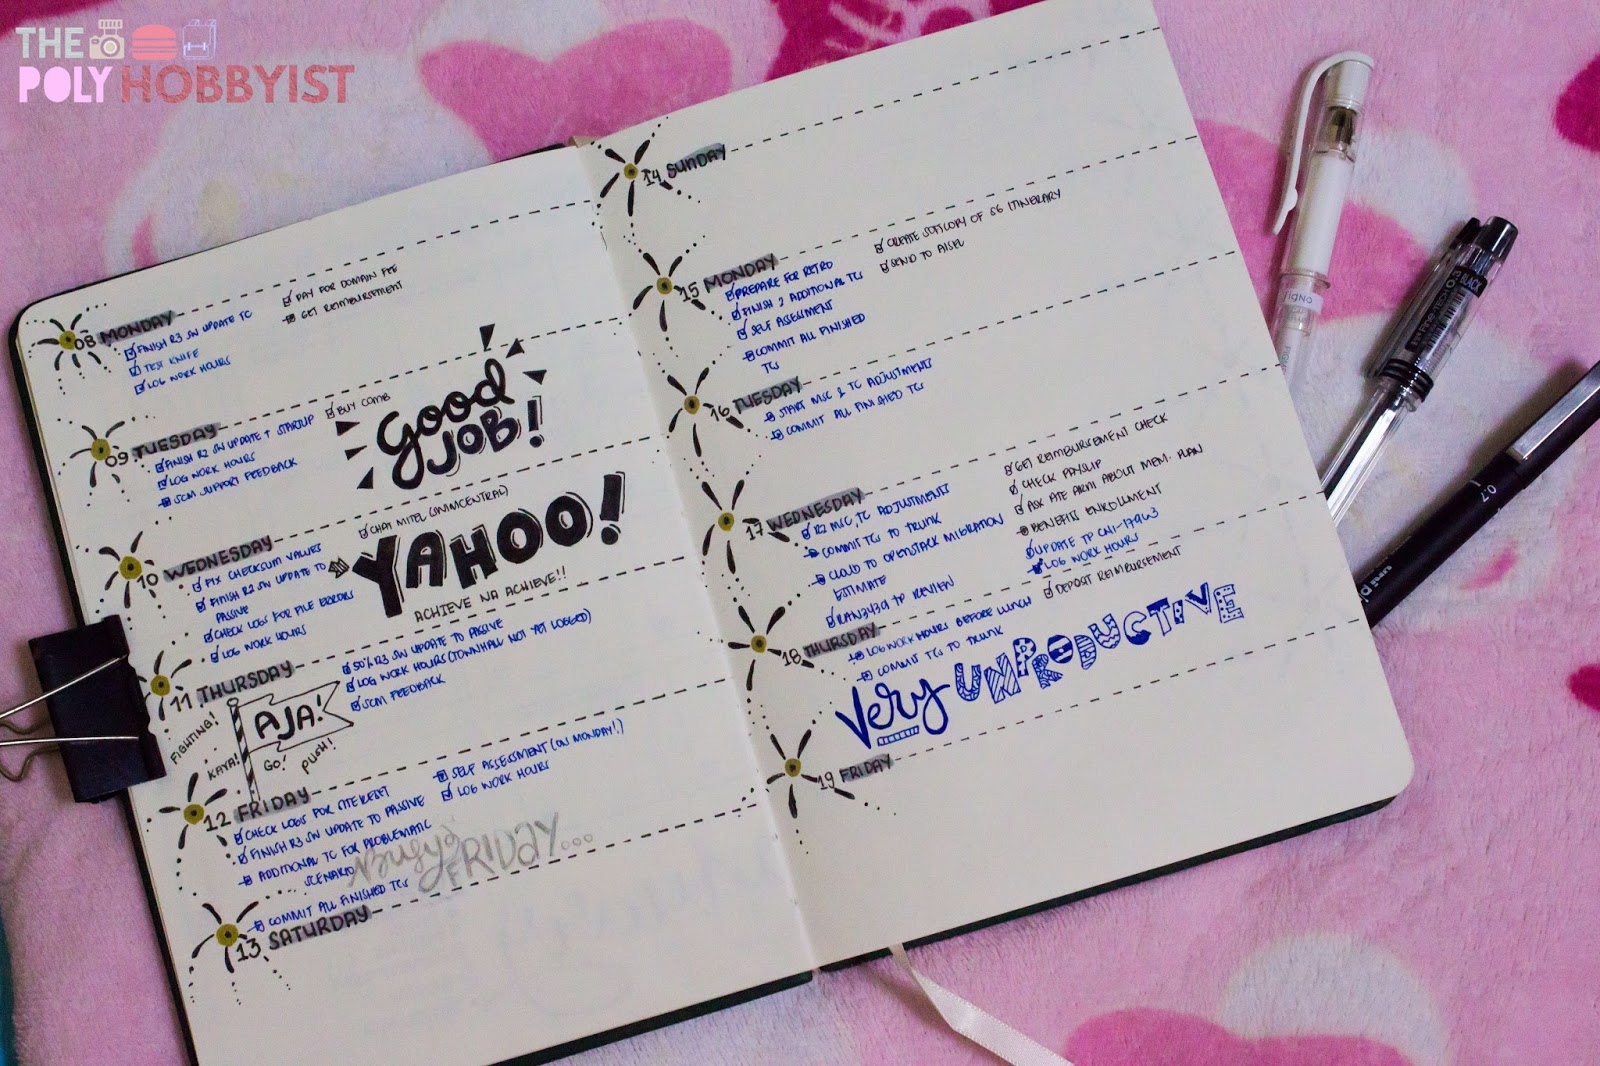 THE
POLY HOBBYIST
08 MONDAY
FINISH R3 SW UPDATE TC
TEST KNIFE
LOG WORK HOURS
PAY FOR DOMAIN FEE
GET REIMBURSEMENT
09 TUESDAY
FINISH R2 SW UPDATE + STARTUP
LOG WORK HOURS
SCM SUPPORT FEEDBACK
BUY COMB
Good
JOB!
10 WEDNESDAY
FIX CHECKSUM VALUES
FINISH R2 SW UPDATE TO
PASSIVE
CHECK LOGS FOR FILE ERRORS
LOG WORK HOURS
CHAT MITEL (INMINCENTRAL)
YAHOO!
ACHIEVE NA ACHIEVE!!
11 THURSDAY
FIGHTING!
AJA!
KAYA!
GO!
PUSH!
50% R3 SW UPDATE TO PASSIVE
LOG WORK HOURS (TOWNHALL NOT YET LOGGED)
SCM FEEDBACK
12 FRIDAY
CHECK LOGS FOR SITE RESET
FINISH R3 SW UPDATE TO PASSIVE
ADDITIONAL TC FOR PROBLEMATIC
SCENARIO
COMMIT ALL FINISHED TCs
SELF ASSESSMENT (ON MONDAY!)
LOG WORK HOURS
Busy
FRIDAY...
13 SATURDAY
14 SUNDAY
15 MONDAY
PREPARE FOR RETRO
FINISH 2 ADDITIONAL TCs
SELF ASSESSMENT
COMMIT ALL FINISHED
TCs
CREATE SOFTCOPY OF SG ITINERARY
SEND TO AISEL
16 TUESDAY
START MSC 2 TC ADJUSTMENTS
COMMIT ALL FINISHED TCs
17 WEDNESDAY
R2 MSC TC ADJUSTMENTS
COMMIT TCs TO TRUNK
CLOUD TO OPENSTACK MIGRATION
ESTIMATE
RAN3439 TP REVIEW
GET REIMBURSEMENT CHECK
CHECK PAYSLIP
ASK ATE ARNI ABOUT MEM. PLAN
BENEFITS ENROLLMENT
UPDATE TP CNI-17963
LOG WORK HOURS
18 THURSDAY
LOG WORK HOURS BEFORE LUNCH
COMMIT TCs TO TRUNK
DEPOSIT REIMBURSEMENT
Very UNPRODUCTIVE
19 FRIDAY
BLACK
0.7
uni